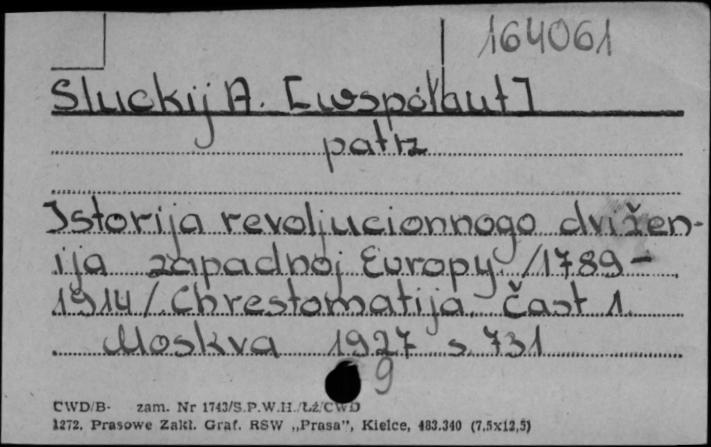 164061
Sluckij A. [współaut]
patrz
Istorija revoljucionnogo dvižen-
ija zapadnoj Europy /1789-
1914/. Chrestomatija. Čast 1.
Moskva 1927 s. 731
9
CWD/B- zam. Nr 1743/S.P.W.H./Łż/CWD
1272. Prasowe Zakł. Graf. RSW „Prasa", Kielce, 483.340 (7,5x12,5)